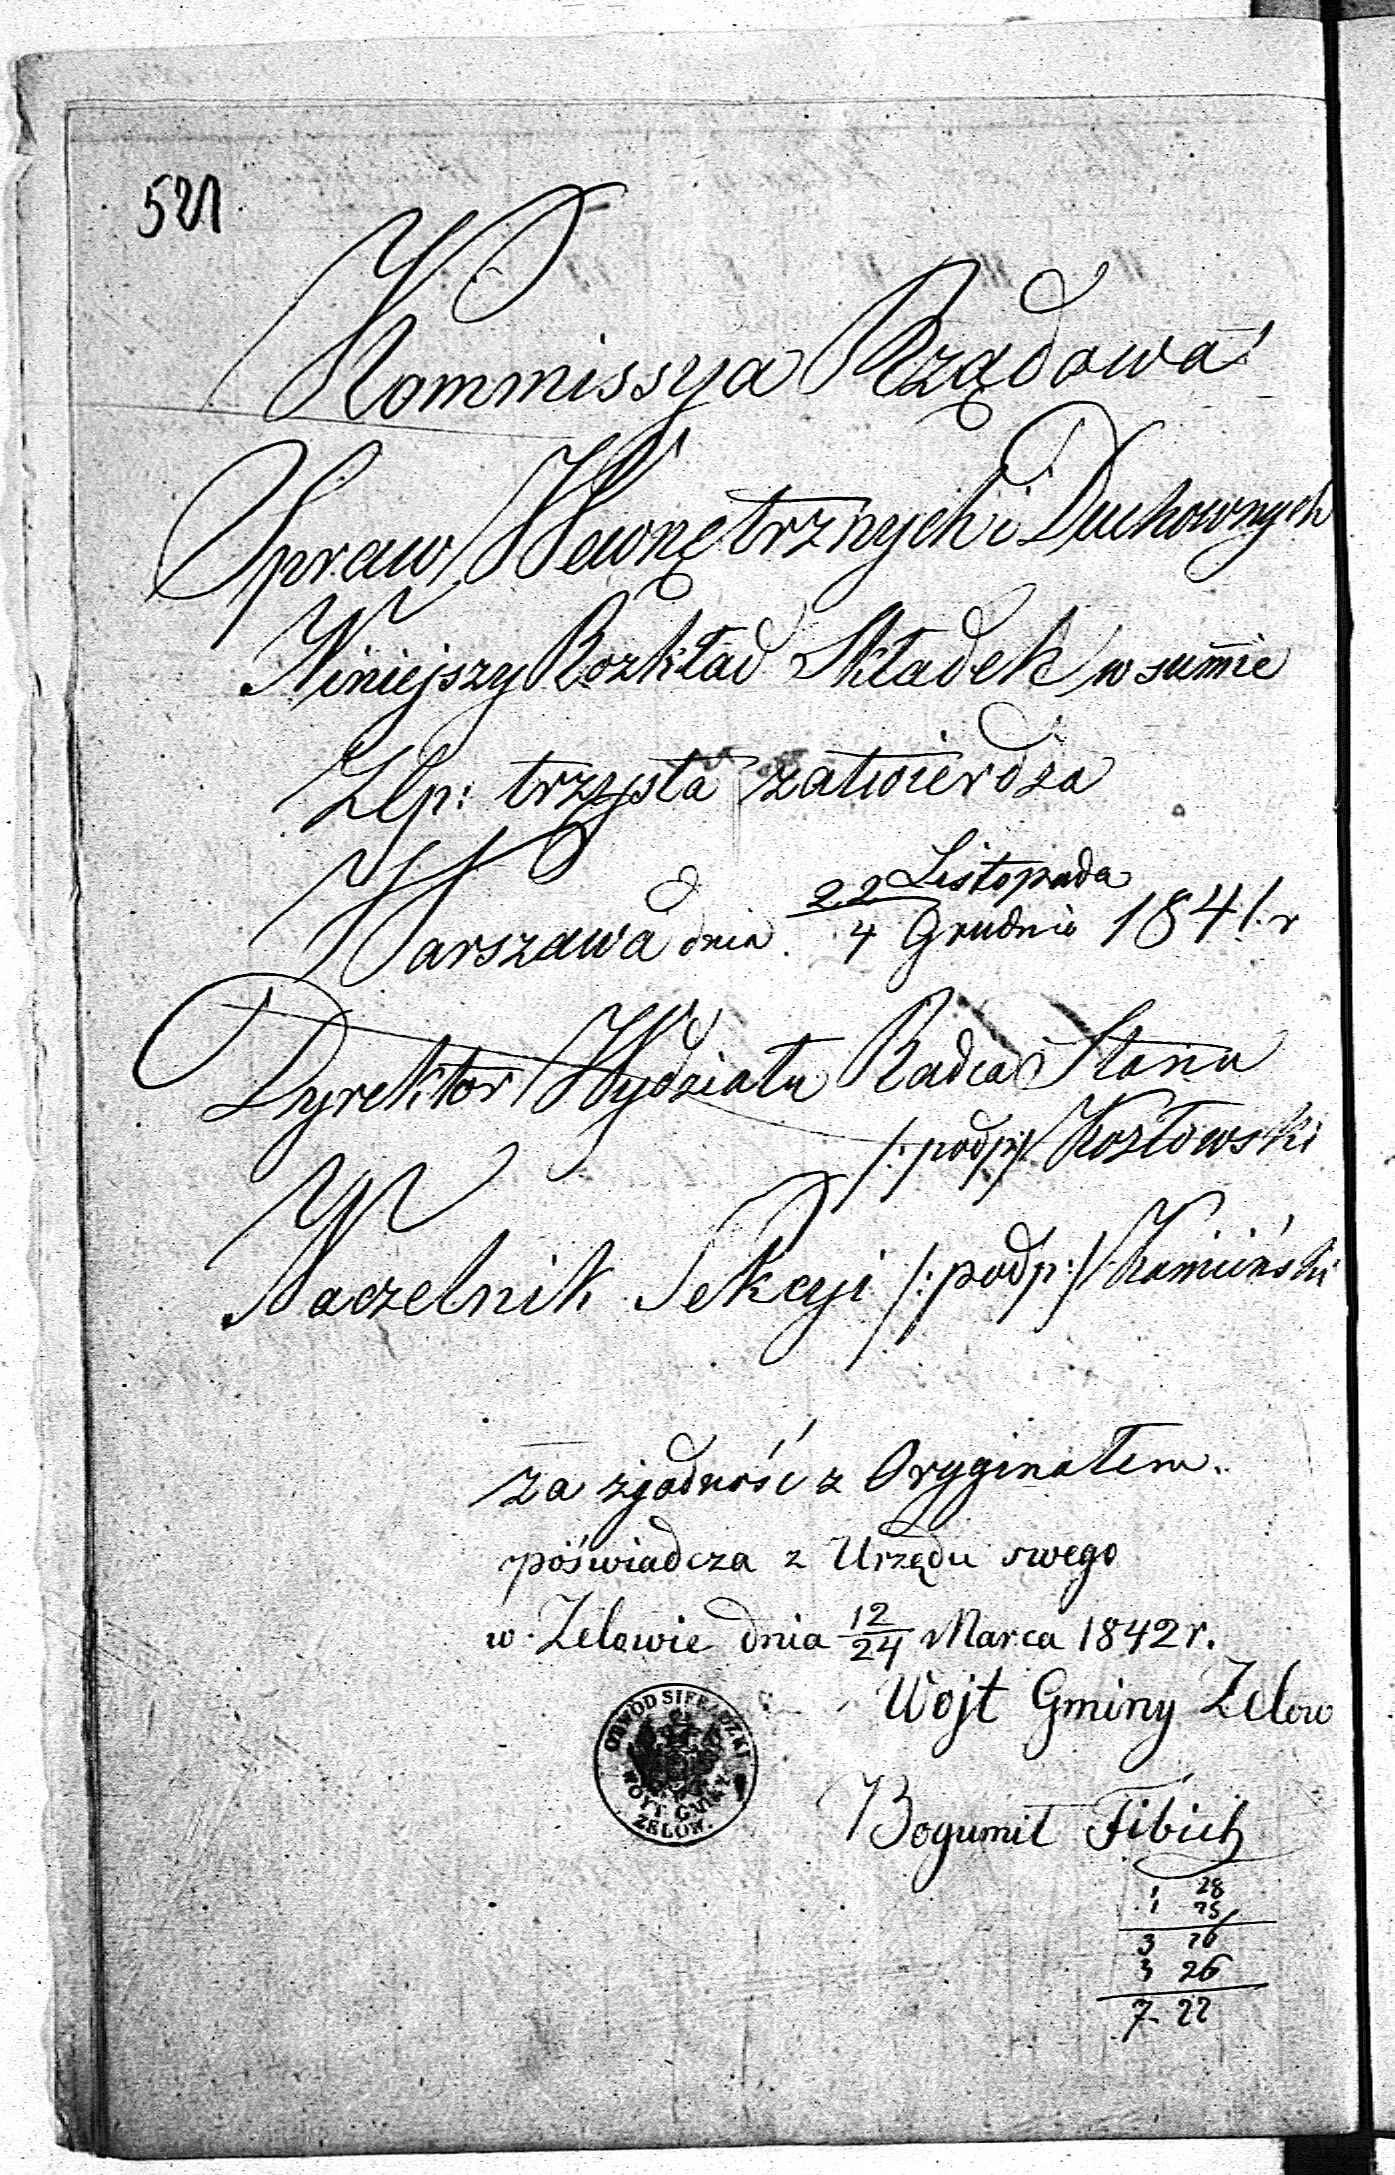 521
Kommissya Rządowa
Spraw Wewnętrznych i Duchownych
Niniejszy Rozkład Składek w summie
Zlp: trzysta zatwierdza
Warszawa dnia 22 Listopada
4 Grudnia 1841. r
Dyrektor Wydziału Radca Stanu
/:podp:/ Kozłowski
Naczelnik Sekcyi /:podp:/ Kamiński
Za zgodność z Oryginałem
poświadcza z Urzędu swego
w Zelowie dnia 12/24 Marca 1842 r.
Wojt Gminy Zelow
OBWÓD SIERADZKI
WOYT GMINY
ZELOW.
Bogumił Fibich
1 28
1 25
3 26
3 26
7. 22